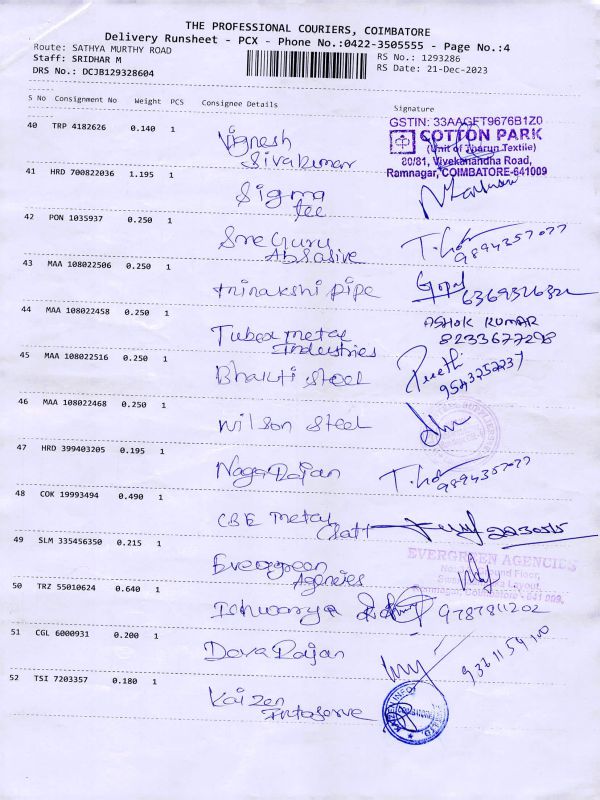 THE PROFESSIONAL COURIERS, COIMBATORE
Delivery Runsheet - PCX - Phone No.:0422-3505555 - Page No.:4
Route: SATHYA MURTHY ROAD
Staff: SRIDHAR M
DRS No.: DCJB129328604
RS No.: 1293286
RS Date: 21-Dec-2023
S No Consignment No Weight PCS Consignee Details Signature
GSTIN: 33AAGFT9676B1Z0
COTTON PARK
(Unit of Tharun Textile)
80/81, Vivekanandha Road,
Ramnagar, COIMBATORE-641009
40 TRP 4182626 0.140 1 Vignesh
Sivakumar
41 HRD 700822036 1.195 1 Sigma
tec
42 PON 1035937 0.250 1 Sree Guru
Abrasive
9894357077
43 MAA 108022506 0.250 1 minakshi pipe Gopal
6369326322
44 MAA 108022458 0.250 1 Tubex metal
Industries
ASHOK KUMAR
8233677298
45 MAA 108022516 0.250 1 Bharti steel Preethi
9543252237
46 MAA 108022468 0.250 1 Wilson Steel
47 HRD 399403205 0.195 1 Naga Rajan
9894357077
48 COK 19993494 0.490 1 CBE metal
Mart
2230515
49 SLM 335456350 0.215 1 Evergreen
Agencies
EVERGREEN AGENCIES
Ramnagar, Coimbatore - 641 009.
50 TRZ 55010624 0.640 1 Ishwarya 9787811202
51 CGL 6000931 0.200 1 Deva Rajan
9361154100
52 TSI 7203357 0.180 1 Kaizen
Infoserve